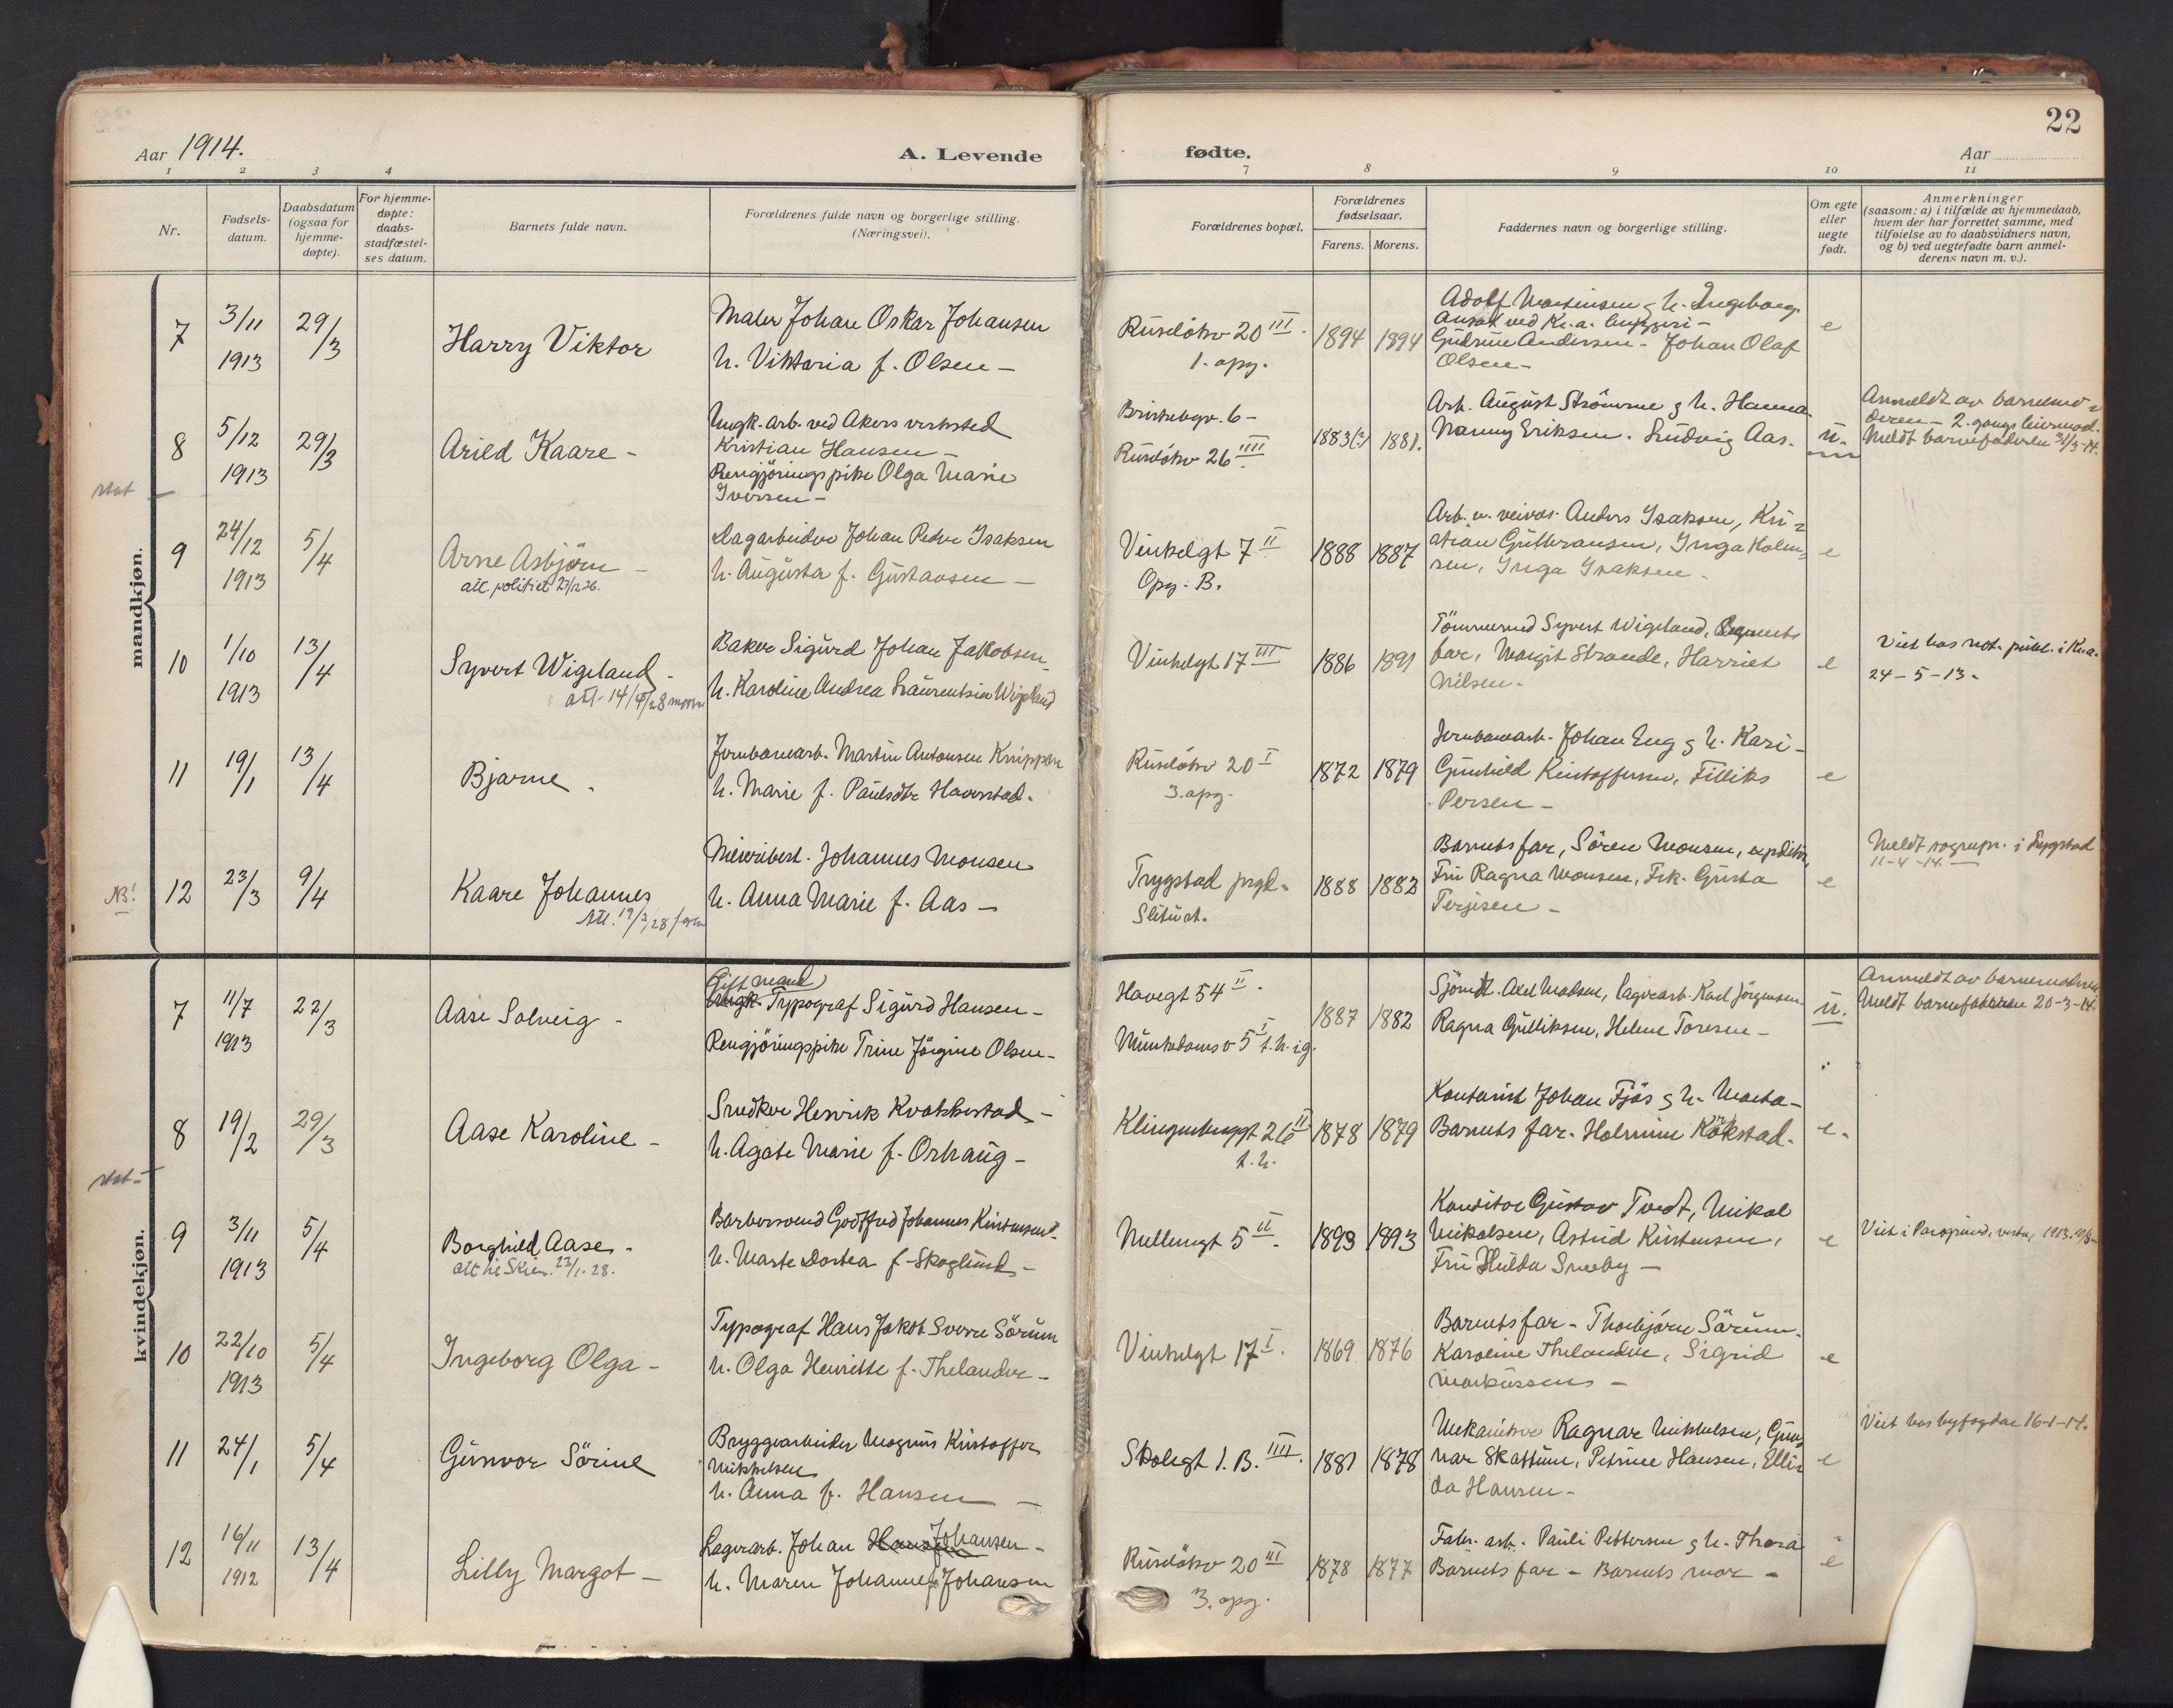 22
Aar 1914.
A. Levende
fødte.
Aar
1 2 3 4 7 8 9 10 11
Nr.
Fødsels-
datum.
Daabsdatum
(ogsaa for
hjemme-
døpte).
For hjemme-
døpte:
daabs-
stadfæstel-
ses datum.
Barnets fulde navn.
Forældrenes fulde navn og borgerlige stilling.
(Næringsvei).
Forældrenes bopæl.
Forældrenes
fødselsaar.
Farens. Morens.
Faddernes navn og borgerlige stilling.
Om egte
eller
uegte
født.
Anmerkninger
(saasom: a) i tilfælde av hjemmedaab,
hvem der har forrettet samme, med
tilføielse av to daabsvidners navn,
og b) ved uegtefødte barn anmel-
derens navn m. v.).
mandkjøn.
7
3/11
1913
29/3
Harry Viktor
Maler Johan Oskar Johansen
h. Viktoria f. Olsen –
Ruseløkv 20 III.
1. opg.
1894 1894
Adolf Martinsen g h. Ingeborg
Ansat ved Kr.a.
Gudrun Andersen - Johan Olaf
Olsen -
e
8
5/12
1913
29/3
Arild Kaare -
Ungk. arb. ved Akers verksted
Kristian Hansen -
Rengjøringspike Olga Marie
Iversen -
6 -
Ruseløkv 26 IIII.
1883(?) 1881.
Arb. August Strömme g h. Hanna.
Nanny Eriksen. Ludvig Aas.
u.
Anmeldt av barnemo-
deren - 2. gangs leiermaal.
Meldt barnefaderen 31/3-14.
9
24/12
1913
5/4
Arne Asbjørn -
att. politiet 23/12 26.
Dagarbeider Johan Peder Isaksen
h. Augusta f. Gustavsen -
Vinkelgt 7 II
Opg. B.
1888 1887
Arb. v. veives. Anders Isaksen, Kri-
stian Guttormsen, Inga Holm-
sen, Inga Isaksen.
e
10
1/10
1913
13/4
Syvert Wigeland -
att. 14/4/28 moren
Baker Sigurd Johan Jakobsen
h. Karoline Andrea Laurentsia Wigeland
Vinkelgt 17 III
1886 1891
Tömmermd Syvert Wigeland, Barnets
far, Margit Strande, Harriet
Nilsen -
e
Viet hos not. publ. i Kr.a.
24-5-13.
11
19/1
13/4
Bjarne.
Jernbanearb. Martin Antonsen Knippen
h. Marie f. Paulsdtr Haverstad.
Ruseløkv 20 I
3. opg.
1872 1879
Jernbanearb. Johan Eng g h. Kari -
Gunhild Kristoffersen, Filliks
Persen -
e
NB!
12
23/3
9/4
Kaare Johannes
Att. 19/3/28 faren
Meieribest. Johannes Monsen
h. Anna Marie f. Aas -
Trygstad prgl.
1888 1882
Barnets far, Søren Monsen, expeditör,
Fru Ragna Monsen, Frk. Gusta
Terjesen -
e
Meldt sognepr. i Trygstad
11-4-14.
kvindekjøn.
7
11/7
1913
22/3
Aase Solveig -
Gift mand
Ungk. Typograf Sigurd Hansen -
Rengjøringspike Trine Jørgine Olsen -
Havegt 54 II.
Munkedamsv 5 I t.h. i g.
1887 1882
Sjömd. Axel Madsen, lagerarb. Karl Jörgensen
Ragna Gulliksen, Helene Toresen -
u.
Anmeldt av barnemoderen
Meldt barnefaderen 20-3-14.
8
19/2
29/3
Aase Karoline -
Snedker Henrik Kvakkestad -
h. Agate Marie f. Orhaug -
Klingenberggt 26 II
t.h.
1878 1879
Kontorist Johan Fjös g h. Marta -
Barnets far. Holmine
e.
9
3/11
1913
5/4
Borghild Aase -
att til Skien 23/1-28.
Barbersvend Godtfred Johannes Kristensen
h. Marte Dortea f. Skoglund -
Mellemgt 5 II.
1893 1893
Konditor Gustav Tvedt, Mikal
Mikalsen, Astrid Kristensen,
Fru Hulda Smeby -
e
Viet i Porsgrund, 1913.
10
22/10
1913
5/4
Ingeborg Olga -
Typograf Hans Jakob Sverre Sörum
h. Olga Henriette f. Thelander -
Vinkelgt 17 I.
1869 1876
Barnets far - Thorbjörn Sörum.
Karoline Thelander, Sigrid
Markussens -
e
11
24/1
5/4
Gunvor Sörine
Bryggearbeider Magnus Kristoffer
Mikkelsen
h. Anna f. Hansen -
Skolegt 1. B. IIII.
1881 1878
Mekaniker Ragnar Mikkelsen, Gun-
nar Skattum, Petrine Hansen, Elli-
da Hansen -
e
Viet hos byfogden 16-1-14.
12
16/11
1912
13/4
Lilly Margot -
Lagerarb. Johan Johansen -
h. Maren Johanne f. Johansen
Ruseløkv 20 III
3. opg.
1878 1877
Fabr. arb. Pauli Pettersen g h. Thora
Barnets far - Barnets mor -
e